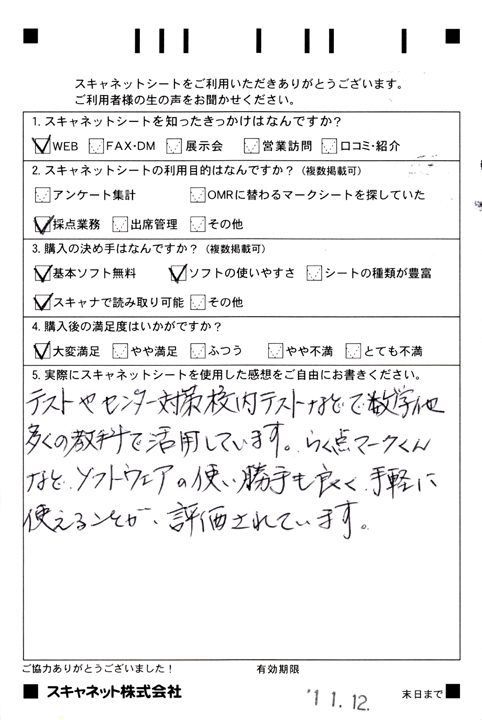 スキャネットシートをご利用いただきありがとうございます。
ご利用者様の生の声をお聞かせください。
1. スキャネットシートを知ったきっかけはなんですか?
WEB FAX・DM 展示会 営業訪問 口コミ・紹介
2. スキャネットシートの利用目的はなんですか?(複数掲載可)
アンケート集計 OMRに替わるマークシートを探していた
採点業務 出席管理 その他
3. 購入の決め手はなんですか?(複数掲載可)
基本ソフト無料 ソフトの使いやすさ シートの種類が豊富
スキャナで読み取り可能 その他
4. 購入後の満足度はいかがですか?
大変満足 やや満足 ふつう やや不満 とても不満
5. 実際にスキャネットシートを使用した感想をご自由にお書きください。
テストやセンター対策校内テストなどで数学他
多くの教科で活用しています。らく点マークくん
など、ソフトウェアの使い勝手も良く、手軽に
使えることが、評価されています。
ご協力ありがとうございました! 有効期限
スキャネット株式会社 '11.12. 末日まで